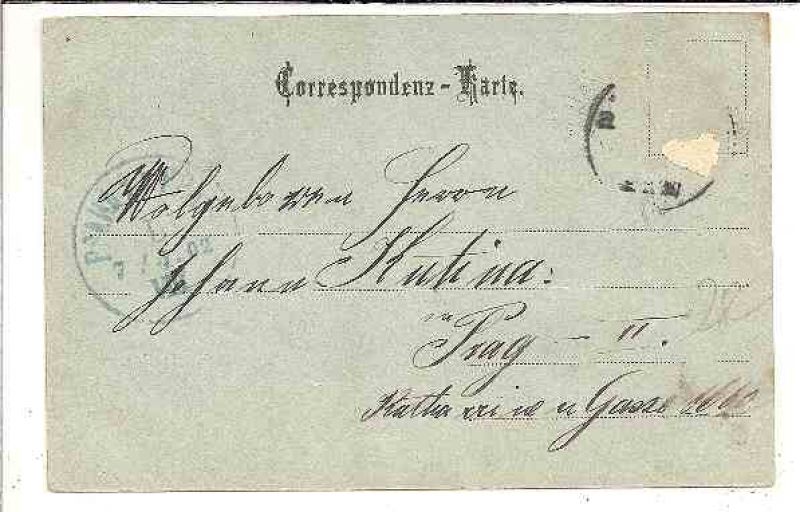 Correspondenz-Karte.
Wolgeborren Herrn
Johann Kutina:
in
Prag - II.
Katharinen Gasse
7 / 02